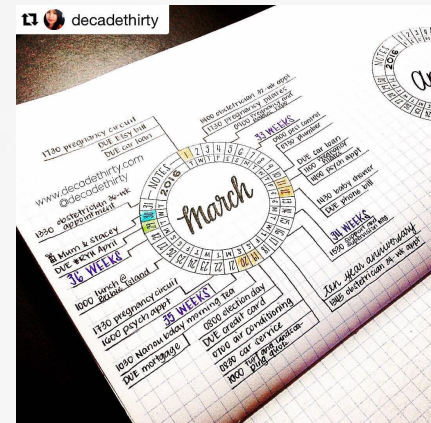 decadethirty
1730 pregnancy circuit
DUE Etsy bill
DUE car loan
www.decadethirty.com
@decadethirty
obstetrician
1330 appointment
Mum & Stacey
DUE April
36 WEEKS
1000 lunch @
Island
1730 pregnancy circuit
1600 psych appt
35 WEEKS
1030 Nanou bday morning tea
DUE mortgage
0800 election day
DUE credit card
0700 air conditioning
0830 car service
1000
ping quote
NOTES
2016
March
1400 obstetrician 32-wk appt
1730 pregnancy pilates
33 WEEKS
pest control
plumber
DUE car loan
psych appt
1630 baby shower
DUE phone bill
34 WEEKS
Ten year anniversary
obstetrician 34-wk appt
NOTES
2016